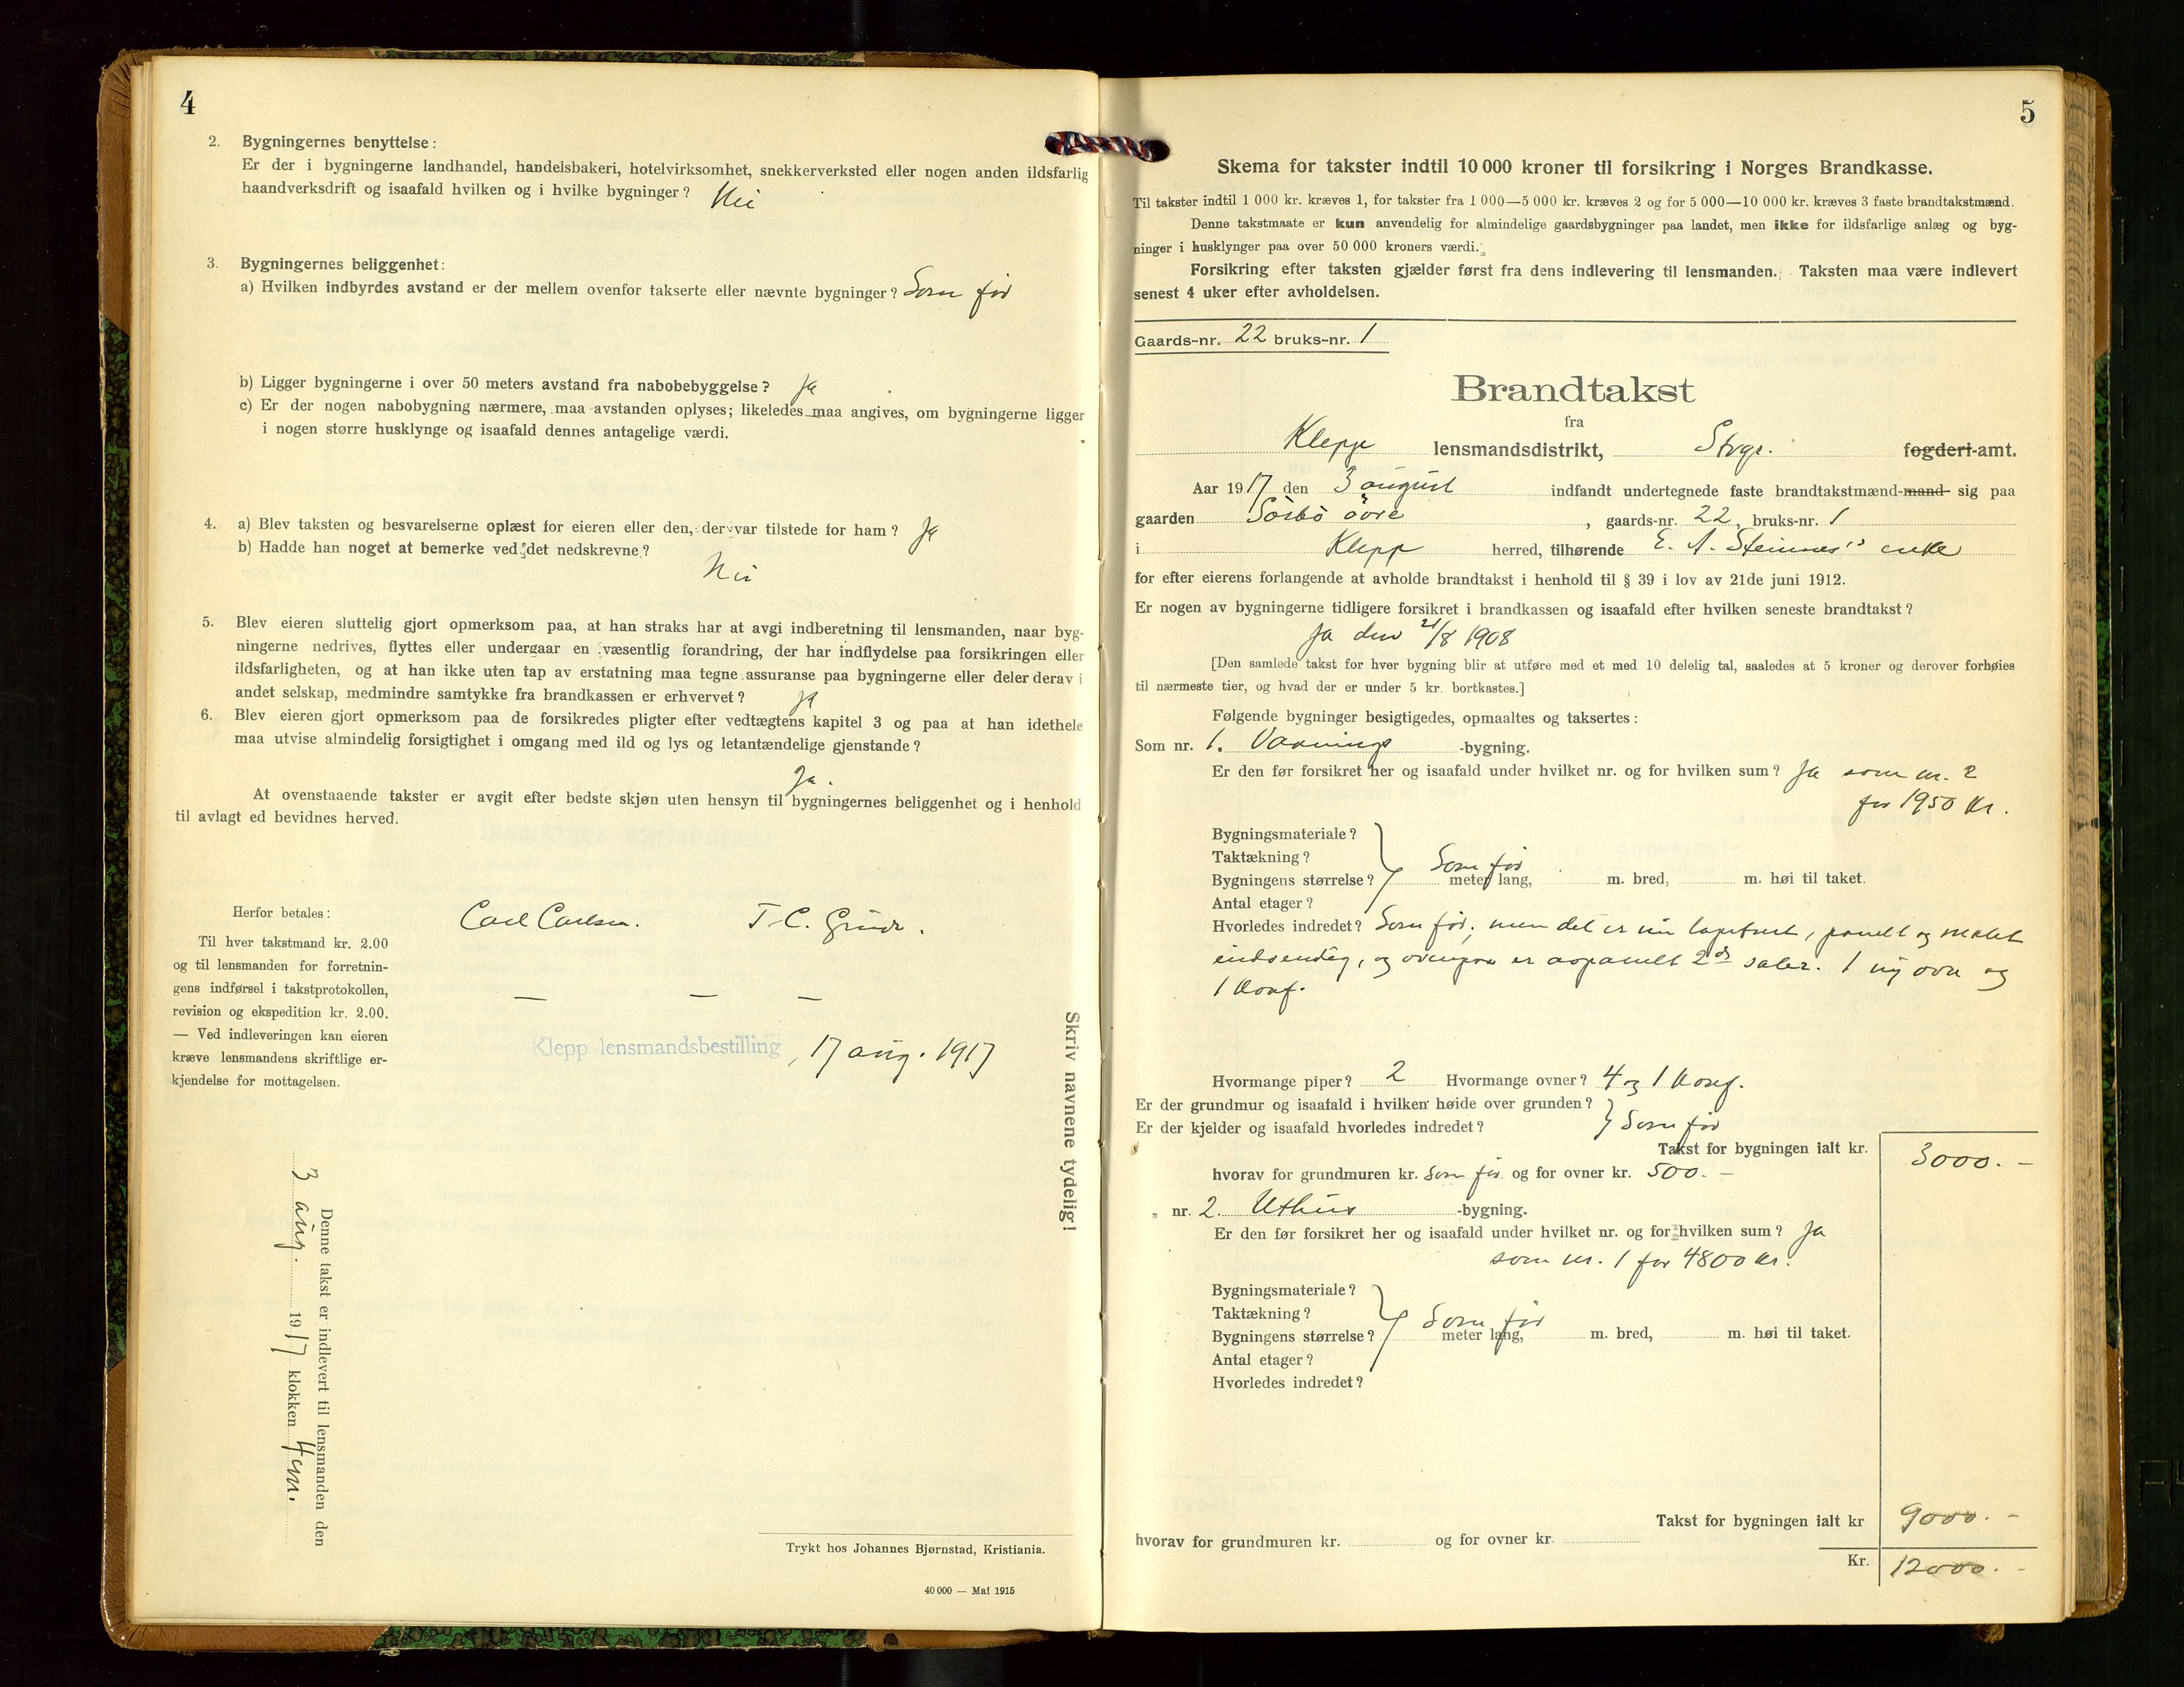 4
2. Bygningernes benyttelse:
Er der i bygningerne landhandel, handelsbakeri, hotelvirksomhet, snekkerverksted eller nogen anden ildsfarlig
haandverksdrift og isaafald hvilken og i hvilke bygninger? Nei
3. Bygningernes beliggenhet:
a) Hvilken indbyrdes avstand er der mellem ovenfor takserte eller nævnte bygninger? Som før
b) Ligger bygningerne i over 50 meters avstand fra nabobebyggelse? Ja
c) Er der nogen nabobygning nærmere, maa avstanden oplyses; likeledes maa angives, om bygningerne ligger
i nogen større husklynge og isaafald dennes antagelige værdi.
4. a) Blev taksten og besvarelserne oplæst for eieren eller den, der var tilstede for ham? Ja
b) Hadde han noget at bemerke ved det nedskrevne?
Nei
5. Blev eieren sluttelig gjort opmerksom paa, at han straks har at avgi indberetning til lensmanden, naar byg-
ningerne nedrives, flyttes eller undergaar en væsentlig forandring, der har indflydelse paa forsikringen eller
ildsfarligheten, og at han ikke uten tap av erstatning maa tegne assuranse paa bygningerne eller deler derav i
andet selskap, medmindre samtykke fra brandkassen er erhvervet? Ja
6. Blev eieren gjort opmerksom paa de forsikredes pligter efter vedtægtens kapitel 3 og paa at han idethele
maa utvise almindelig forsigtighet i omgang med ild og lys og letantændelige gjenstande?
Ja.
At ovenstaaende takster er avgit efter bedste skjøn uten hensyn til bygningernes beliggenhet og i henhold
til avlagt ed bevidnes herved.
Carl Carlsen. T. C. Grude.
Herfor betales:
Til hver takstmand kr. 2.00
og til lensmanden for forretnin-
gens indførsel i takstprotokollen,
revision og ekspedition kr. 2.00.
— Ved indleveringen kan eieren
kræve lensmandens skriftlige er-
kjendelse for mottagelsen.
— — —
Klepp lensmandsbestilling, 17 aug. 1917
Skriv navnene tydelig!
Denne takst er indlevert til lensmanden den
3 aug. 1917 klokken 4 em.
Trykt hos Johannes Bjørnstad, Kristiania.
40 000 — Mai 1915
5
Skema for takster indtil 10 000 kroner til forsikring i Norges Brandkasse.
Til takster indtil 1 000 kr. kræves 1, for takster fra 1 000—5 000 kr. kræves 2 og for 5 000—10 000 kr. kræves 3 faste brandtakstmænd.
Denne takstmaate er kun anvendelig for almindelige gaardsbygninger paa landet, men ikke for ildsfarlige anlæg og byg-
ninger i husklynger paa over 50 000 kroners værdi.
Forsikring efter taksten gjælder først fra dens indlevering til lensmanden. Taksten maa være indlevert
senest 4 uker efter avholdelsen.
Gaards-nr. 22 bruks-nr. 1
Brandtakst
fra
Klepp lensmandsdistrikt, Stvgr. fogderi-amt.
Aar 1917 den 3 august indfandt undertegnede faste brandtakstmænd-mand sig paa
gaarden Sørbø øvre, gaards-nr. 22, bruks-nr. 1
i Klepp herred, tilhørende E. A. Steinnes's enke
for efter eierens forlangende at avholde brandtakst i henhold til § 39 i lov av 21de juni 1912.
Er nogen av bygningerne tidligere forsikret i brandkassen og isaafald efter hvilken seneste brandtakst?
Ja den 21/8 1908
[Den samlede takst for hver bygning blir at utføre med et med 10 delelig tal, saaledes at 5 kroner og derover forhøies
til nærmeste tier, og hvad der er under 5 kr. bortkastes.]
Følgende bygninger besigtigedes, opmaaltes og taksertes:
Som nr. 1. Vaanings-bygning.
Er den før forsikret her og isaafald under hvilket nr. og for hvilken sum? Ja som nr. 2
for 1950 kr.
Bygningsmateriale?
Taktækning? Som før
Bygningens størrelse? meter lang, m. bred, m. høi til taket.
Antal etager?
Hvorledes indredet? Som før, men det er nu tapetsert, panelt og malet
indvendig, og ovenpaa er avpanelt 2 saler. 1 ny ovn og
1 komf.
Hvormange piper? 2 Hvormange ovner? 4 og 1 komf.
Er der grundmur og isaafald i hvilken høide over grunden?
Er der kjelder og isaafald hvorledes indredet? Som før
Takst for bygningen ialt kr. 3000.—
hvorav for grundmuren kr. Som før og for ovner kr. 500.—
„ nr. 2. Uthus-bygning.
Er den før forsikret her og isaafald under hvilket nr. og for hvilken sum? Ja
som nr. 1 for 4800 kr.
Bygningsmateriale?
Taktækning? Som før
Bygningens størrelse? meter lang, m. bred, m. høi til taket.
Antal etager?
Hvorledes indredet?
Takst for bygningen ialt kr 9000.-
hvorav for grundmuren kr. og for ovner kr.
Kr. 12000.-